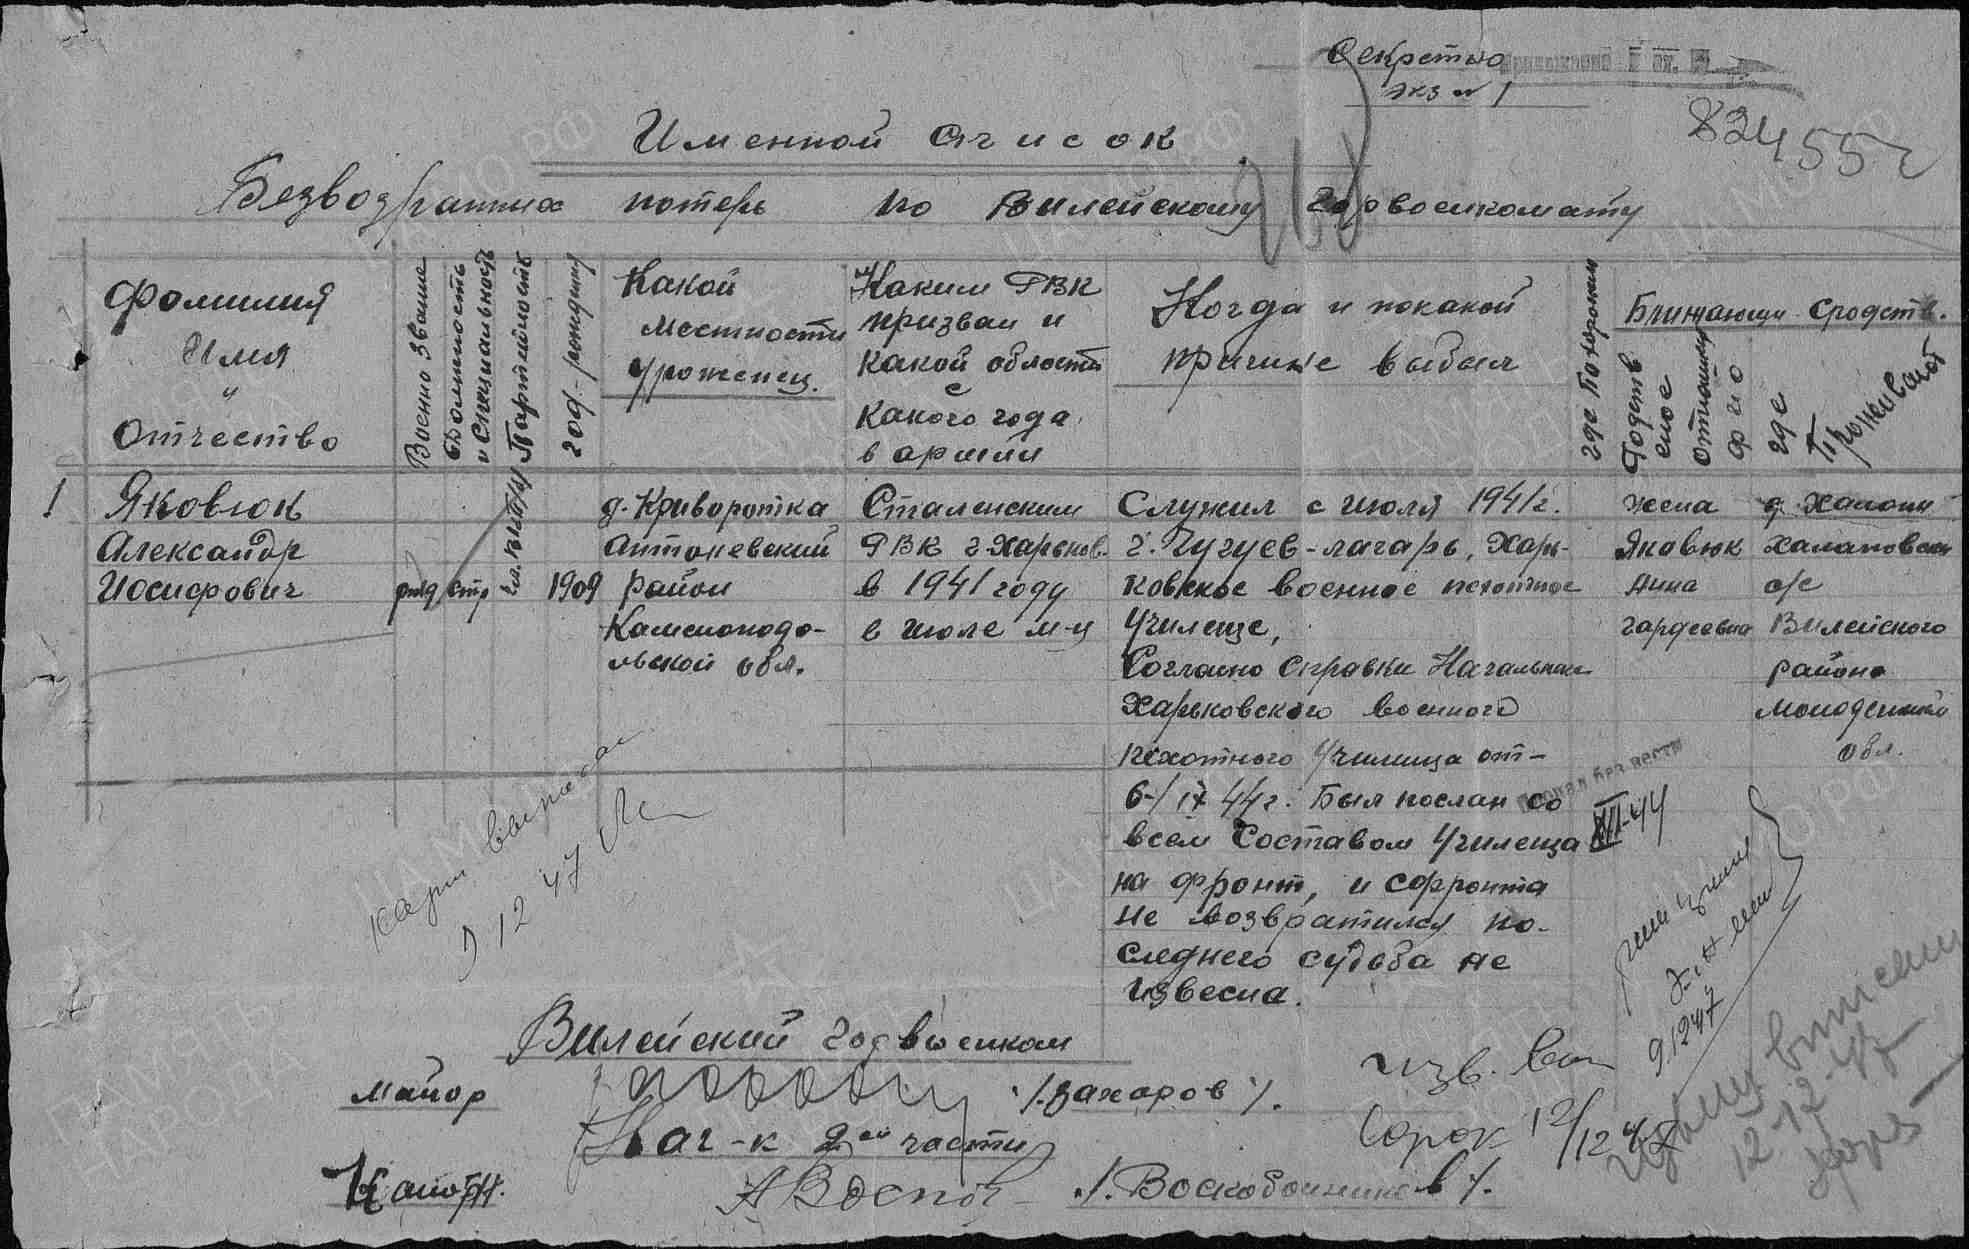 Секретно
экз № 1
82455с
Именной список
Безвозвратних потерь по Вилейскому Горвоенкомату
Фомилия
Имя
и
Отчество
Военно звание
должность
и Специальность
Партийность
год-рождения
Какой
местности
уроженец.
Каким РВК
призван и
какой области
с
какого года
в армии
Когда и покакой
причине выбыл
где Похоронен
Ближающи сродств.
Родств
еное
отношение
ф и о
где
проживают
1 Яковюк
Александр
Иосифович
ряд стр
чл. ВКП/б/
1909
д. Криворотка
Антоневский
район
Каменоподо-
льской обл.
Сталенским
РВК г. Харьков.
в 1941 году
в июле м-ц
Служил с июля 1941г.
г. Чугуев-лагарь, Харь-
ковское военное пехотное
Училеще,
Согласно справки Начальника
Харьковского военного
пехотного Училища от-
6-/IX 44г. Был послан со
всем Составом Училеща
на фронт, и сфронта
не возвратился по-
следнего судьба не
извесна.
жена
Яковюк
Анна
гардеевна
д. Халопи
Вилейского
района
обл.
Пропал без вести
XII-44
9 12 47
Вилейский горвоенком
майор /.Захаров/.
Нач-к 2ой части
Капитан. /.Воскобойников/.
изв.
Сорок 12/12 47
9.12 47
12-12-47